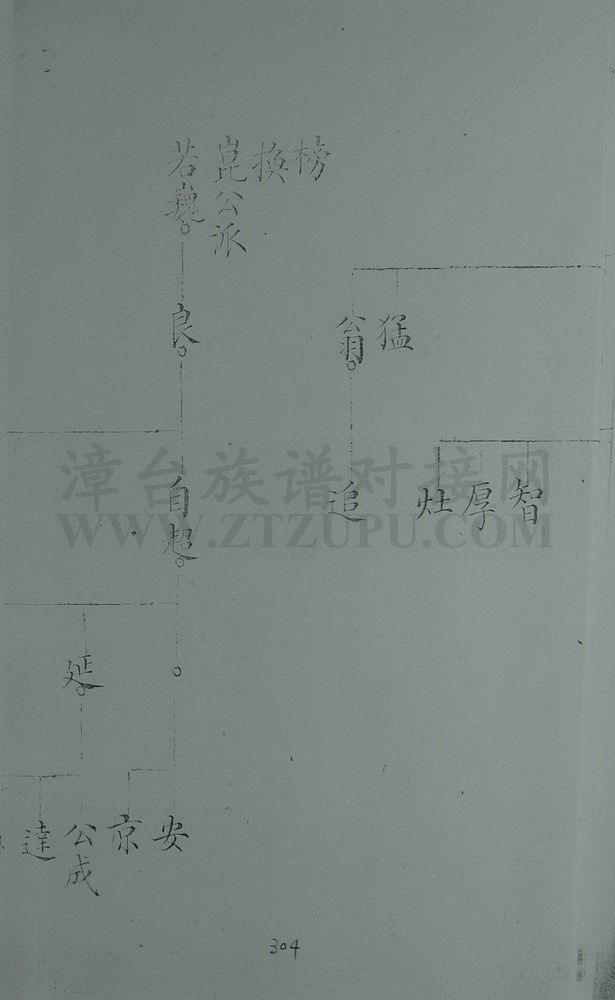 榜
換
崑公派
若巍
猛
翁
良
智
厚
灶
追
自超
延
安
京
公成
達
漳台族谱对接网
WWW.ZTZUPU.COM
304